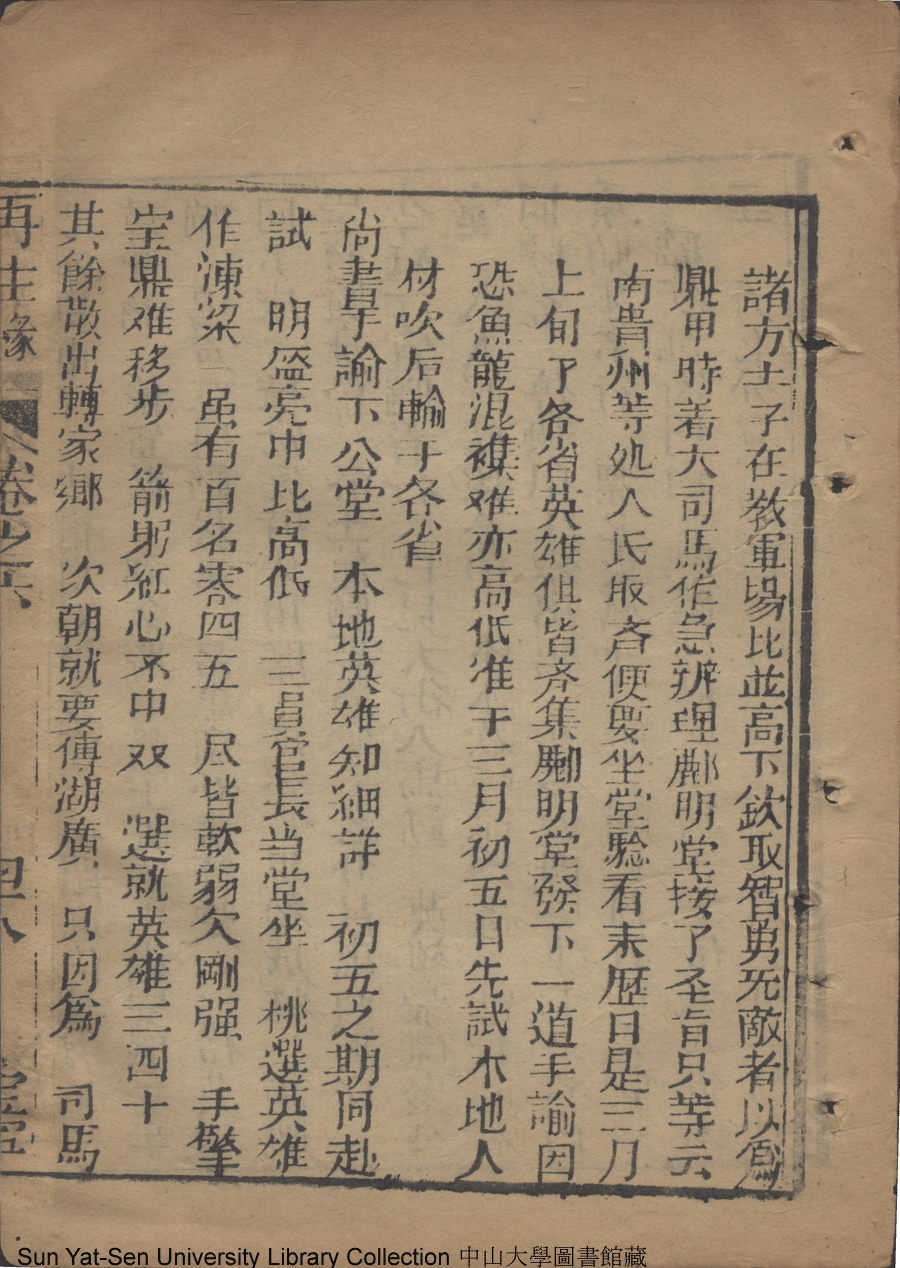 諸方士子在教軍場比並高下欽取智勇无敵者以為
鼎甲時着大司馬作急辦理酈明堂接了圣旨只等云
南貴州等処人氏取斉便要坐堂驗看末歷日是三月
上旬了各省英雄俱皆斉集酈明堂發下一道手諭因
恐魚龍混襍难亦高低准于三月初五日先試本地人
材吹后輪于各省
尚書手諭下公堂 本地英雄知細詳 初五之期同赴
試 明盔亮巾比高低 三員官長当堂坐 桃選英雄
作涷梁 虽有百名零四五 尽皆軟弱欠剛强 手擎
宝鼎难移步 箭躬紅心不中双 選就英雄三四十
其餘散出轉家鄉 次朝就要傳湖廣 只因爲 司馬
再生緣 卷之六 四八
Sun Yat-Sen University Library Collection 中山大學圖書館藏